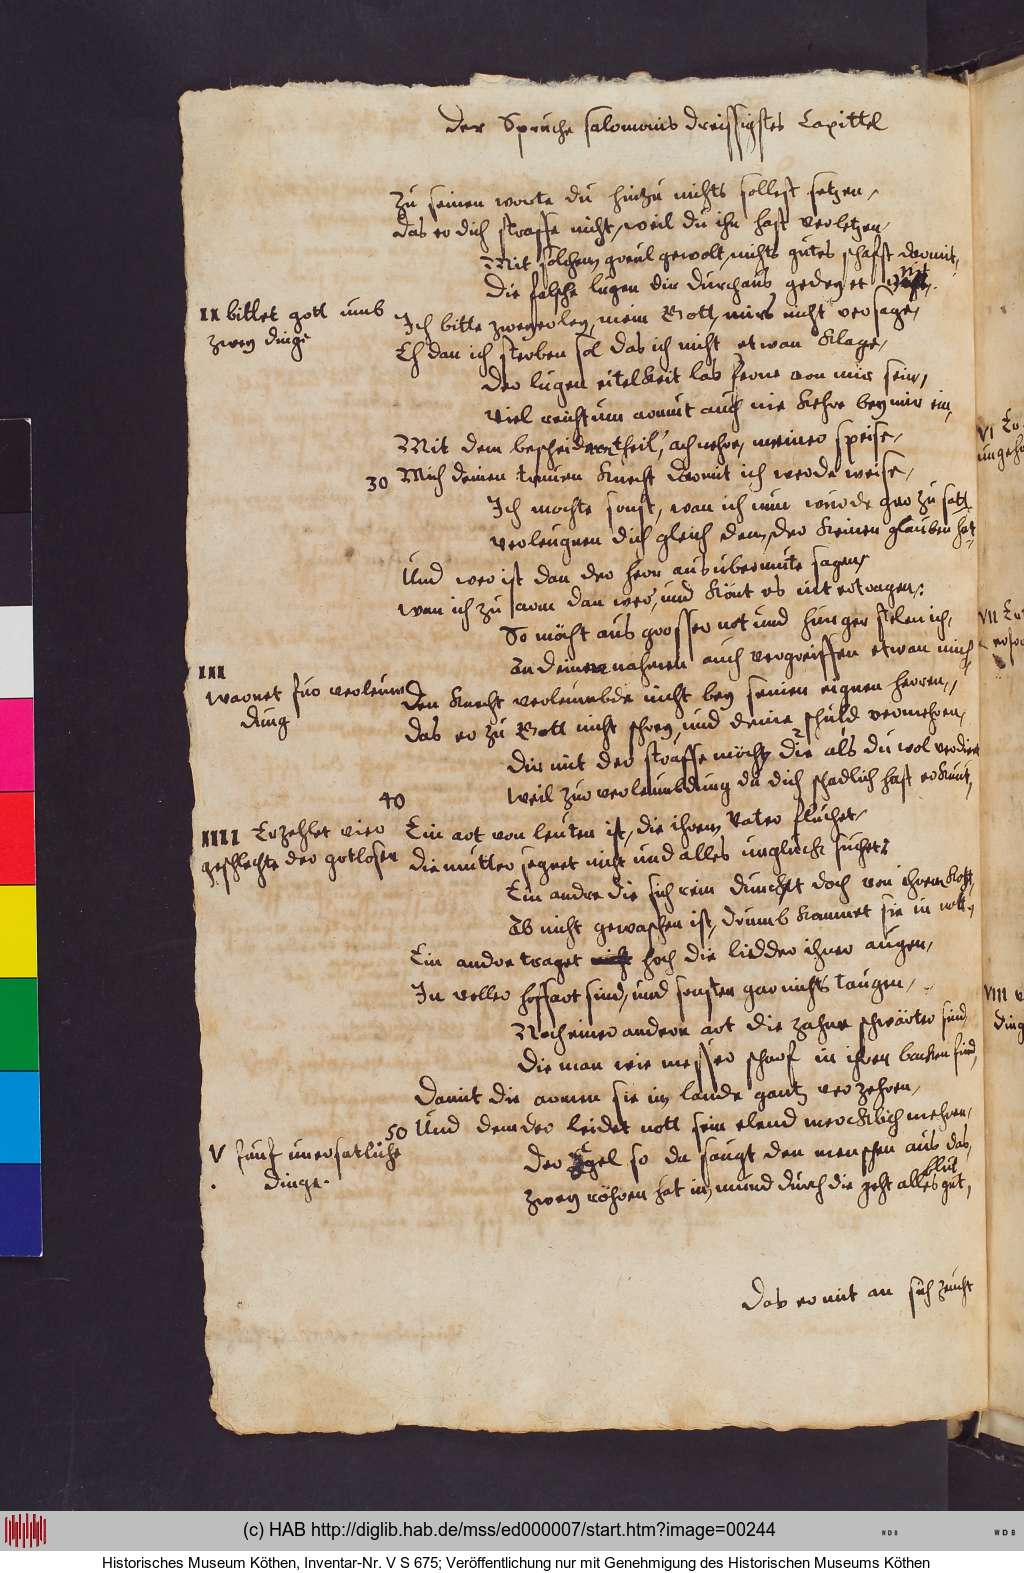 Der Spruche Salomonis dreissigstes Capittel
Zu seinen worte du hinzu nichts sollest setzen,
Das er dich straffe nicht, weil du ihn hast verletzen,
Mit solchem greul gewolt, nichts gutes schafst darmit,
Die falsche lugen dir durchaus gedeyet nit.
II bittet gott umb
zwey dinge
Ich bitte zweyerley, mein Gott, mirs nicht versage,
Eh dan ich sterben sol das ich nicht etwan klage,
Der lugen eitelkeit las ferne von mir sein,
Viel reichtum armut auch nie kehre bey mir ein,
Mit dem bescheidnen theil, ach nehre, meiner speise,
30 Mich deinen treuen knecht darmit ich werde weise,
Ich mochte sonst, wan ich nun wurde gar zu satt
verleugnen dich gleich dem, der keinen glauben hat,
Und wer ist dan der herr aus ubermute sagen,
wan ich zu arm dan wer, und könt es nit ertragen:
So möcht aus grosser not und hunger stelen ich,
An deinem nahmen auch vergreiffen etwan mich
III
warnet fur verleum
dung
Den knecht verleumbde nicht bey seinen eignen herren,
das er zu Gott nicht schrey, und deine schuld vermehren,
Dir mit der straffe möcht, die als du wol verdient
weil zur verleumbdung du dich schadlich hast erkünt,
40
IIII Erzehlet vier
geschlechte der gotlosen
Ein art von leuten ist, die ihrem vater fluchet,
die mutter segnet nicht und alles ungluck suchet:
Ein andre die sich rein dunckt doch von ihrem koht
Ab nicht gewaschen ist, drumb kommet sie in noht,
Ein andre traget hoch die lidder ihrer augen,
In voller hoffart sind, und sonsten gar nichts taugen,
Noch einer andern art die zahne schwärter sind
die man wie messer scharf in ihren backen find,
Damit die armen sie im lande gantz verzehren,
50 Und dem der leidet nott sein elend mercklich mehren,
V funf unersatliche
dinge.
Der Egel so da saugt den menschen aus das blut
zwey röhren hat im mund durch die geht alles gut,
Das er mit an sich zeucht
VI Er
ungeho
VII Er
VIII
ding
(c) HAB http://diglib.hab.de/mss/ed000007/start.htm?image=00244
WDB
WDB
Historisches Museum Köthen, Inventar-Nr. V S 675; Veröffentlichung nur mit Genehmigung des Historischen Museums Köthen